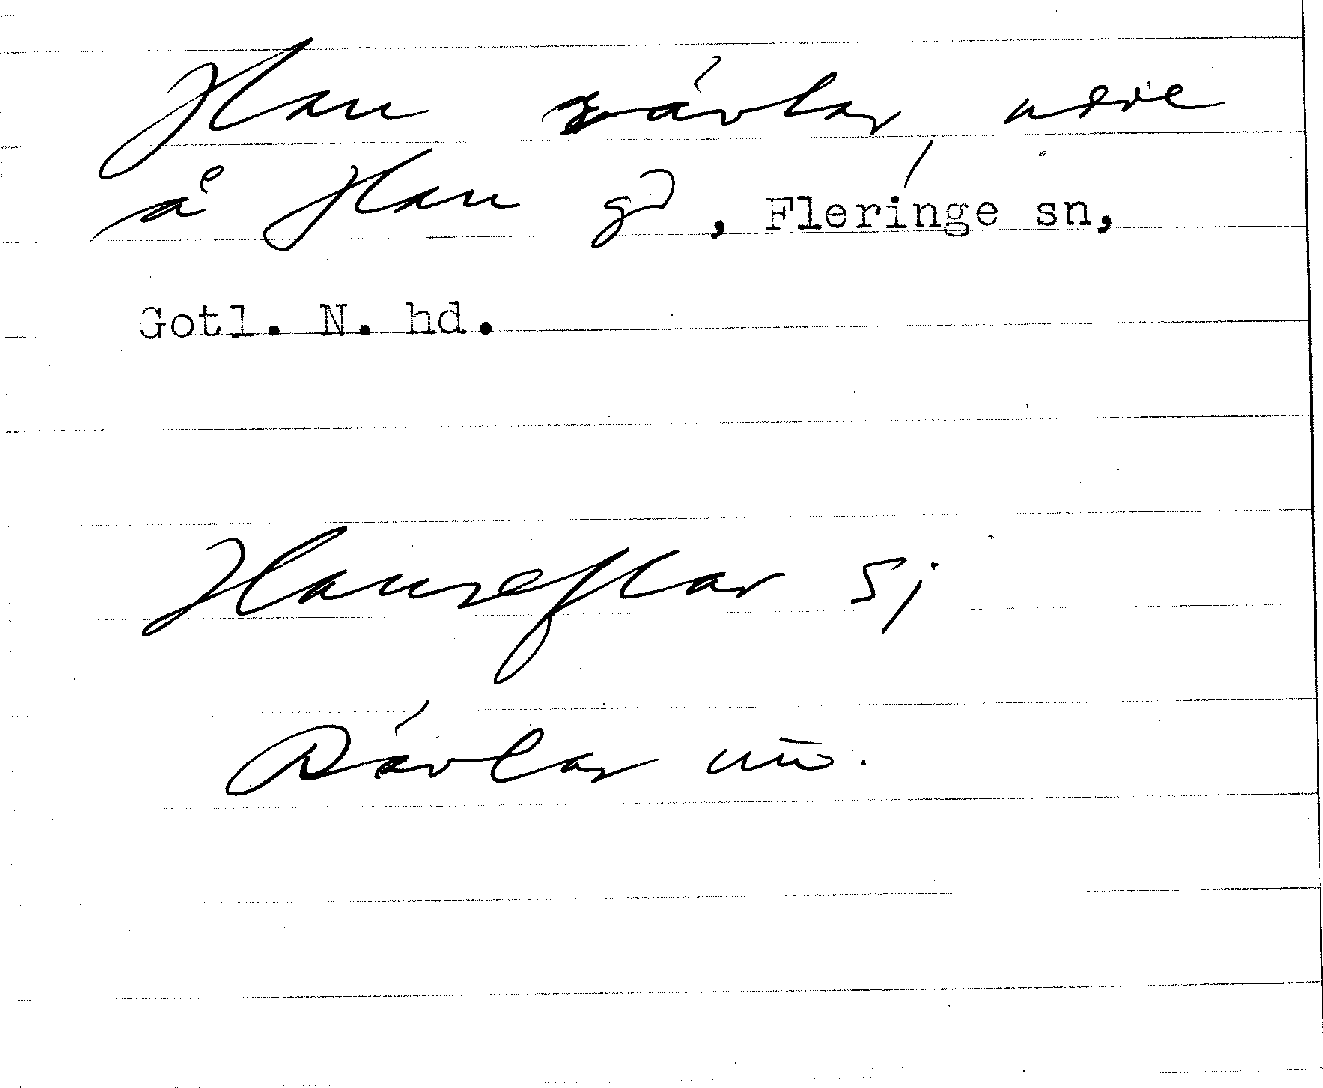 Hau rávlar nere
å Hau gd, Fleringe sn,
Gotl. N. hd.
Hausreflar Sj
Rávlar un.